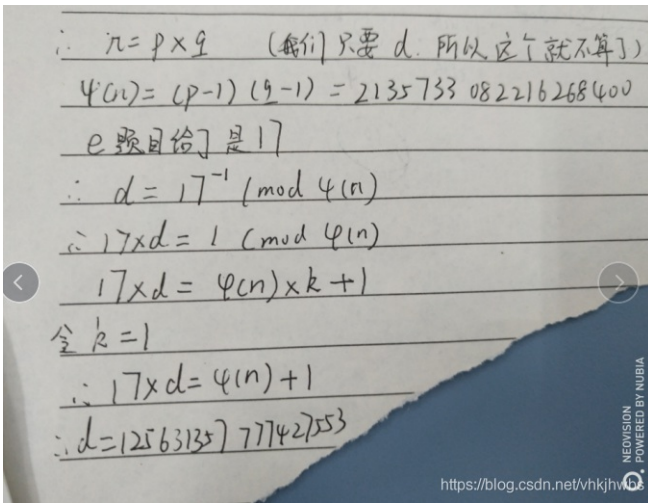 ∴ n = p × q (我们只要d. 所以这个就不算了)
φ(n) = (p-1)(q-1) = 2135733 082216268400
e 题目给了是17
∴ d = 17⁻¹ (mod φ(n)
∴ 17×d = 1 (mod φ(n)
17×d = φ(n)×k+1
令 k = 1
∴ 17×d = φ(n)+1
∴ d = 125631357 777427553
NEOVISION
POWERED BY NUBIA
https://blog.csdn.net/vhkjhwbs